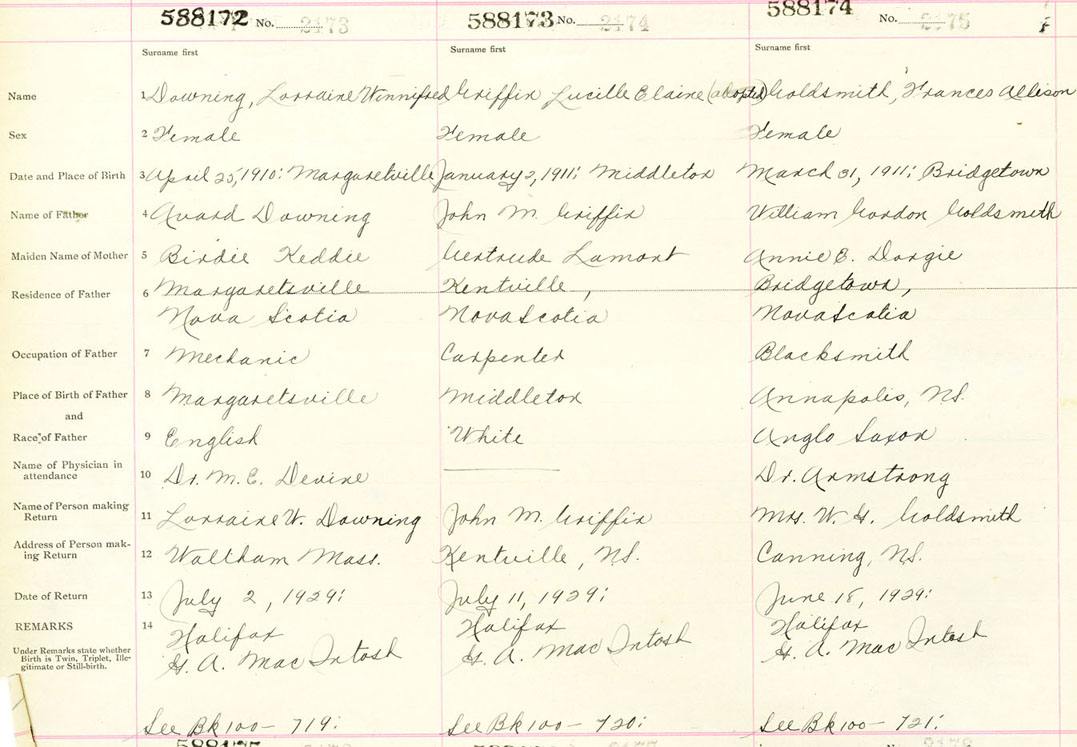 588172 No. 2173 588173 No. 2174 588174 No. 2175
Surname first Surname first Surname first
Name 1 Downing, Lorraine Winnifred Griffin Lucille Elaine (adopted) Goldsmith, Frances Allison
Sex 2 Female Female Female
Date and Place of Birth 3 April 25, 1910: Margaretville January 2, 1911: Middleton March 31, 1911: Bridgetown
Name of Father 4 Avard Downing John M. Griffin William Gordon Goldsmith
Maiden Name of Mother 5 Birdie Keddie Gertrude Lamont Annie E. Dargie
Residence of Father 6 Margaretsville Kentville, Bridgetown,
Nova Scotia Nova Scotia Nova Scotia
Occupation of Father 7 Mechanic Carpenter Blacksmith
Place of Birth of Father 8 Margaretsville Middleton Annapolis, N.S.
and
Race of Father 9 English White Anglo Saxon
Name of Physician in
attendance 10 Dr. M. E. Devine Dr. Armstrong
Name of Person making
Return 11 Lorraine W. Downing John M. Griffin Mrs. W. G. Goldsmith
Address of Person mak-
ing Return 12 Waltham Mass. Kentville, N.S. Canning, N.S.
Date of Return 13 July 2, 1929: July 11, 1929: June 18, 1929:
REMARKS 14 Halifax Halifax Halifax
Under Remarks state whether
Birth is Twin, Triplet, Ille-
gitimate or Still-birth.
G. A. MacIntosh G. A. MacIntosh G. A. MacIntosh
See Bk 100 - 719: See Bk 100 - 720: See Bk 100 - 721: